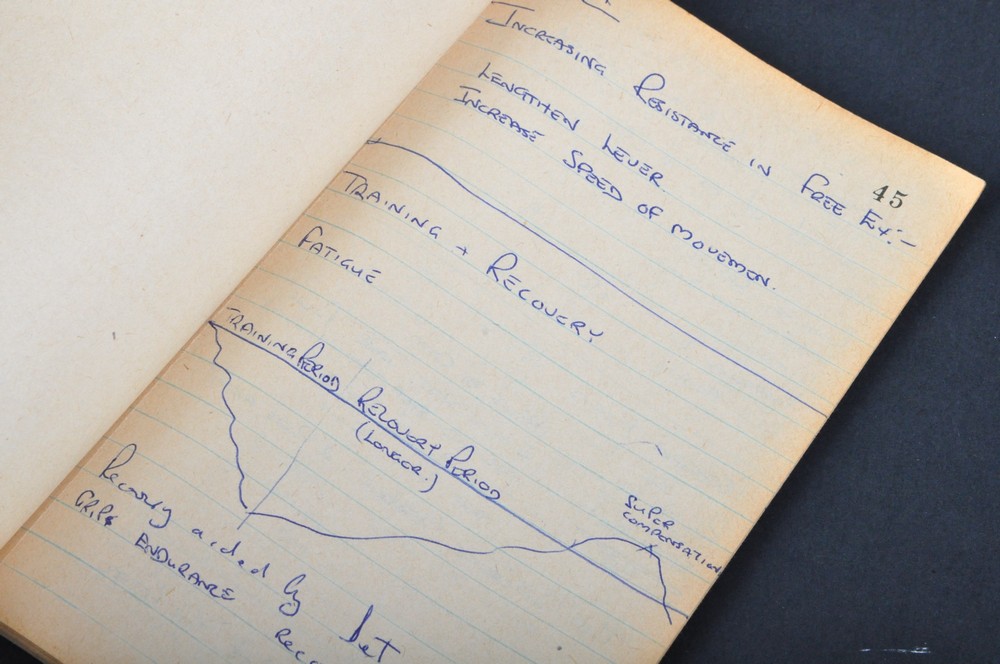 45
INCREASING RESISTANCE IN FREE EX:-
LENGTHEN LEVER.
INCREASE SPEED OF MOVEMEN.
TRAINING + RECOVERY
FATIGUE
TRAINING PERIOD RECOVERY PERIOD
(LONGER.)
SUPER
COMPENSATION
Recovery aided by
ENDURANCE